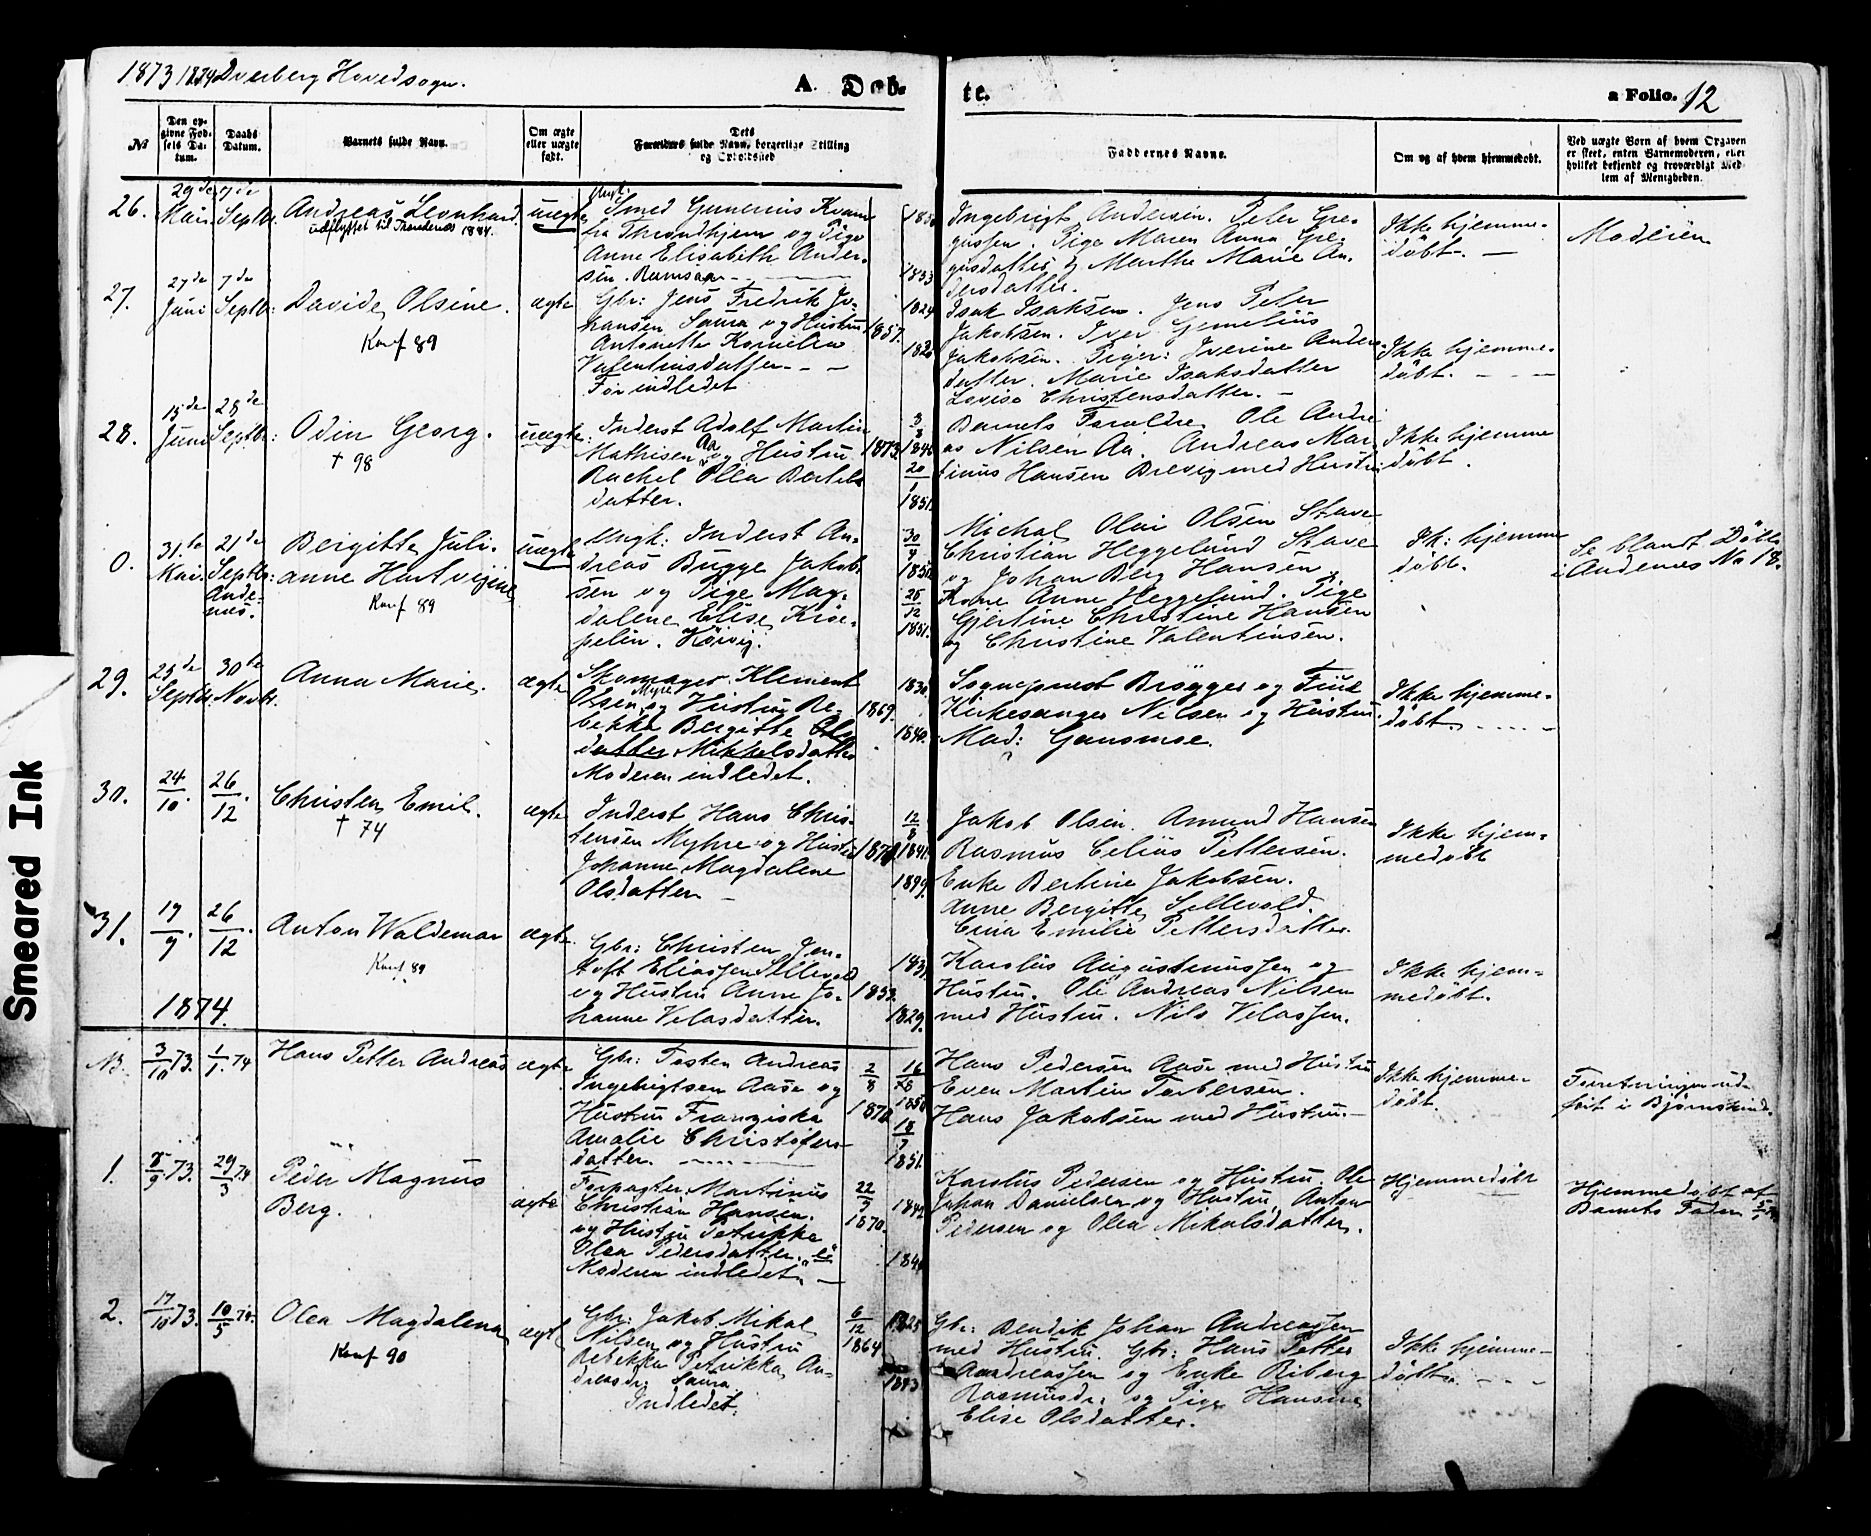 1873 1874 Dverberg Hovedsogn.
A. Døb-
te.
a Folio. 12
No
Den op-
givne Fød-
sels Da-
tum.
Daabs
Datum.
Barnets fulde Navn.
Om ægte
eller uægte
født.
Dets
Forældres fulde Navn, borgerlige Stilling
og Opholdssted
Faddernes Navne.
Om og af hvem hjemmedøbt.
Ved uægte Børn af hvem Opgaven
er skeet, enten Barnemoderen, eller
hvilket bekjendt og troværdigt Med-
lem af Menigheden.
26.
29de
Mai
7de
Septbr.
Andreas Leonhard.
udflyttet til Throndenes 1884.
uægte
Ungk.
Smed Gunerius Kvam
fra Throndhjem og Pige
Anne Elisabeth Ander-
sen. Ramsaa
1853
Ingebrigt Andersen. Peter Gre-
gussen. Pige Maren Anna Gre-
gusdatter og Marthe Marie An-
dersdatter.
Ikke hjemme-
døbt. —
Moderen
27.
27de
Juni
7de
Septbr:
Davida Olsine.
Konf 89
ægte
Gbr: Jens Fredrik Jo-
hansen Saura og Hustru
Antonette Kornelia
Valentinsdatter - -
Før indledet
1857.
1824
Isak Isaksen. Jens Peter
Jakobsen. Iver Cornelius
Jakobsen. Piger: Iverine Anders-
datter. Marie Isaksdatter
Lovisa Christensdatter. -
Ikke hjemme-
døbt. - - -
28.
15de
Juni
28de
Septbr:
Odin Georg.
† 98
uægte:
Inderst Adolf Martin
Mathisen Aa og Hustru
Rachel Olla Bertels
datter.
1873
3/8
1846
20/1
1851.
Barnets Forældre. Ole Andre-
as Nilsen Aa. Andreas Mar-
tinus Hansen Breivig med Hustru
Ikke hjemme
døbt.
0.
31te
Mai
21de
Septbr:
Ande-
nes.
Bergitte Juli-
anne Hartvigine
Konf 89
uægte
Ungk: Inderst An-
dreas Bugge Jakob-
sen og Pige Mag-
dalene Elise Kræ-
pelin. Køivig.
30/4
1850
25/12
1851.
Michal Olai Olsen Stave
Christian Heggelund Stave
og Johan Berg Hansen
Kone Anne Heggelund. Pige
Gjertine Christine Hansen
og Christine Valentinsen.
Ik: hjemme
døbt.
Se blandt Døbte
i Andenes No 18.
29.
25de
Septbr
30te
Novbr.
Anna Marie.
ægte
Skomager Klement
Olsen Myre og Hustru Re-
bekka Bergitte Ols
datter Mikkelsdatter
Moderen indledet.
1869.
1830
1840.
Sognepræst Brøgger og Frue
Kirkesanger Nilsen og Hustru.
Mad: Gausmoe.
Ikke hjemme-
døbt. - - - -
30.
24/10.
26/12.
Christen Emil.
† 74
ægte
Inderst Hans Chris-
tensen Myhre og Hustru
Johanne Magdalene
Olsdatter —
12/8
1841.
1849
Jakob Olsen. Amund Hansen
Rasmus Celius Pettersen.
Enke Bertine Jakobsen.
Anne Bergitte Sellevold.
Emilie Pettersdatter.
Ikke hjem-
medøbt
31.
19/9.
26/12
Anton Waldemar
Konf 89
ægte.
Gbr: Christen Jen-
toft Eliassen Sellevold
og Hustru Anne Jo-
hanne Velasdatter.
1853.
1831
1829.
Karolus Augustinussen og
Hustru. Ole Andreas Nilsen
med Hustru. Nils Velassen.
Ikke hjem-
medøbt.
1874.
NB.
3/10 73.
1/1. 74
Hans Petter Andreas
ægte
Gbr: Testen Andreas
Ingebrigtsen Aase og
Hustru Franziska
Amalie Christofers-
datter.
2/8
1870
1850
1851.
Hans Pedersen Aase med Hustru
Even Martin Torbersen.
Hans Jakobsen med Hustru—
Ikke hjemme-
døbt.
Forretningen ud-
ført i Bjørnskind.
1.
73.
29/3 74
Peder Magnus
Berg.
ægte
Forpagter Martinus
Christian Hansen.
og Hustru Petrikke
Olea Pedersdatter.
Moderen indledet. —
1870.
1842
Karolus Pedersen og Hustru. Ole
Johan Danielsen og Hustru. Anton
Pedersen og Olea Mikalsdatter.
Hjemmedøbt
Hjemmedøbt af
Barnets Fader
2.
17/10 73.
10/5 74.
Olea Magdalena
Konf 90
ægte
Gbr: Jakob Mikal
Nilsen og Hustru
Rebekka Petrikka An-
dreasdr. Saura
Indledet.
6/12
1864
1825
1843
Gbr: Bendik Johan Andreassen
med Hustru. Gbr: Hans Petter
Andreassen og Enke Riborg
Rasmusdr. og Pige Hansine
Elise Olsdatter.
Ikke hjemme-
døbt. - - -
Smeared Ink